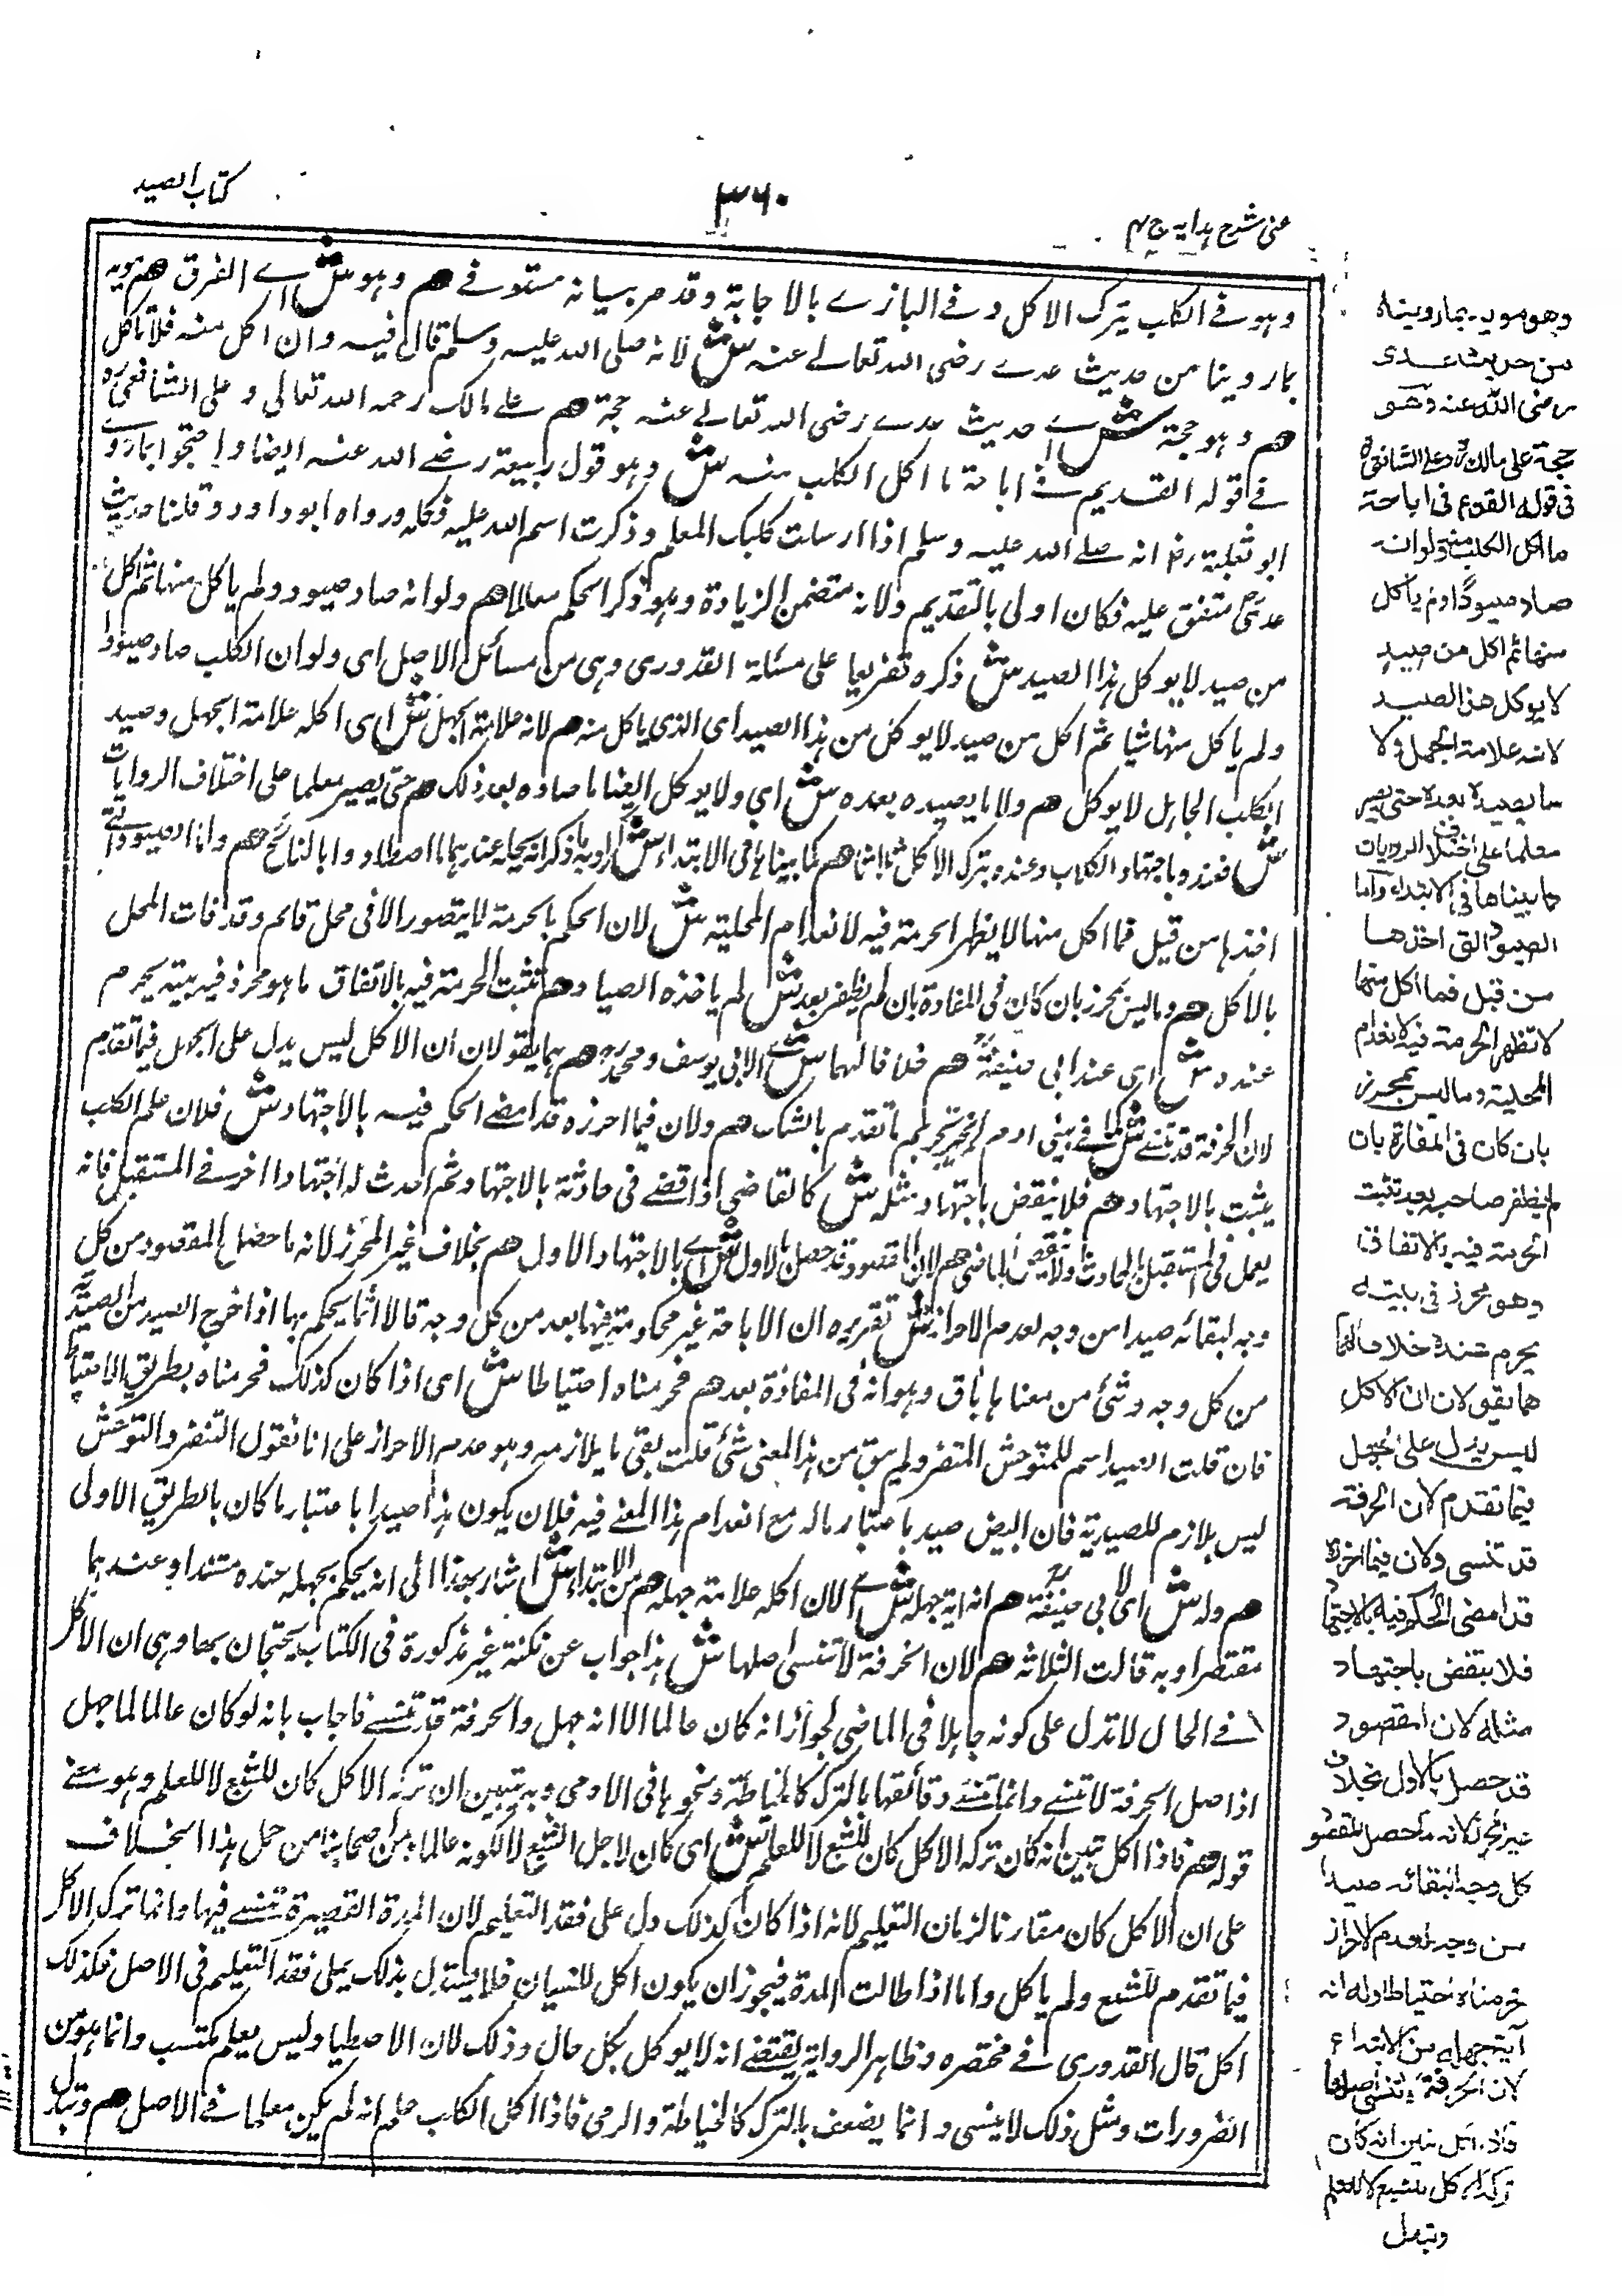 كتاب الصيد
٣٦٠
عنى شرح هدايه ج ٤
وهو فے الكلب يترك الاكل وفے البازے بالاجابة وقد مر بيانه مستوفے هم وهو ش اے الفرق هم مويد
بما روينا من حديث عدے رضى الله تعالے عنه ش لانه صلى الله عليه وسلم قال فيه وان اكل منه فلا تاكل
هم وهو حجة ش اے حديث عدے رضى الله تعالے عنه حجة هم علے مالك رحمه الله تعالى وعلى الشافعى ره
فے قوله القديم فے اباحة ما اكل الكلب منه ش وهو قول ربيعة رضے الله عنه ايضا واحتجوا بما روے
ابو ثعلبة رض انه صلے الله عليه وسلم اذا ارسلت كلبك المعلم وذكرت اسم الله عليه فكله ورواه ابو داود وقلنا حديث
عدى متفق عليه فكان اولى بالتقديم ولانه متضمن الزيادة وهو ذكر الحكم معللا هم ولو انه صاد صيود ولم ياكل منها ثم اكل
من صيد لا يوكل هذا الصيد ش ذكره تفريعا على مسئلة القدورى وهى من مسائل الاصل اى ولو ان الكلب صاد صيودا
ولم ياكل منها شيا ثم اكل من صيد لا يوكل من هذا الصيد اى الذى ياكل منه هم لانه علامة الجهل ش اى اكله علامة الجهل وصيد
الكلب الجاهل لا يوكل هم ولا ما يصيده بعده ش اى ولا يوكل ايضا ما صاده بعد ذلك هم حتى يصير معلما على اختلاف الروايات
ش فعنده باجتهاد الكلاب وعنده بترك الاكل ثلثا هم كما بيناها فى الابتداء ش اراد به ما ذكر انه يحله عندهما ما اصطاد وا بالثالث هم واما الصيود التے
اخذها من قبل فما اكل منها لا يظهر الحرمة فيه لانعدام المحلية ش لان الحكم بالحرمة لا يتصور الا فى محل قائم وقد فات المحل
بالاكل هم وما ليس بمحرز بان كان فى المفازة بان لم يظفر بعد ش لم ياخذه الصياد هم تثبت الحرمة فيه بالاتفاق ما هو محرز فى بيته يحرم
عنده ش اى عند ابى حنيفة هم خلافا لهما ش اے لابى يوسف ومحمد ره هم هما يقولان ان الاكل ليس يدل على الجهل فيما تقدم
لان الحرفة قد تنسے هم ولان فيما احرزه قد امضے الحكم فيه بالاجتهاد ش فلان علم الكلب
يثبت بالاجتهاد هم فلا ينقض باجتهاد مثله ش كالقاضى اذا قضے فى حادثة بالاجتهاد ثم احدث له اجتهادا اخر فے المستقبل فانه
يعمل فى المستقبل بالحادث ولا ينقض الماضى هم لان المقصود قد حصل بالاول ش اے بالاجتهاد الاول هم بخلاف غير المحرز لانه ما حصل المقصود من كل
وجه لبقائه صيدا من وجه لعدم الاحراز ش تقريره ان الاباحة غير محكوم بها فيما بعد من كل وجه قالا انما يحكم بها اذا خرج الصيد من الصيدية
من كل وجه وشئ من معناها باق وهو انه فى المفازة بعد هم فحرمناه احتياطا ش اى اذا كان كذلك فحرمناه بطريق الاحتياط
فان قلت الصيد اسم للمتوحش المتنفر ولم يبق من هذا المعنى شئ قلت بقى ما يلازمه وهو عدم الاحراز على انا نقول التنفر والتوحش
ليس بلازم للصيدية فان البيض صيد باعتبار ماله مع انعدام هذا المعنے فيه فلان يكون هذا صيدا باعتبار ما كان بالطريق الاولى
هم وله ش اى لابى حنيفة هم انه اية جهله ش اے لان اكله علامة جهله هم من الابتداء ش اشار بهذا الى انه يحكم بجهله عنده مستندا وعندهما
مقتصرا وبه قالت الثلاثة هم لان الحرفة لا تنسى اصلها ش هذا جواب عن نكتة غير مذكورة فى الكتاب يحتجان بها وهى ان الاكل
فے الحال لا تدل على كونه جاهلا فى الماضى لجواز انه كان عالما الا انه جهل والحرفة قد تنسے فاجاب بانه لو كان عالما لما جهل
اذ اصل الحرفة لا تنسے وانما تنسے دقائقها بالترك كالخياطة ونحوها فى الادمى وبه تبين ان تركه الاكل كان للشبع لا للعلم وهو معنے
قوله هم فاذا اكل تبين انه كان تركه الاكل كان للشبع لا للعلم ش اى كان لاجل الشبع لا لكونه عالما ومن اصحابنا من حمل هذا الخلاف
على ان الاكل كان مقارنا لزمان التعليم لانه اذا كان كذلك دل على فقد التعليم لان المدة القصيرة تنسے فيها وانما ترك الاكل
فيما تقدم للشبع ولم ياكل واما اذا طالت المدة فيجوز ان يكون اكل للنسيان فلا يستدل بذلك على فقد التعليم فى الاصل فكذلك
اكل قال القدورى فے مختصره وظاهر الرواية يقتضے انه لا يوكل بكل حال وذلك لان الاصطياد ليس بعلم مكتسب وانما هو من
الضرورات ومثل ذلك لا ينسى وانما يضعف بالترك كالخياطة والرمى فاذا اكل الكلب علم انه لم يكن معلما فے الاصل هم وتبدل
وهو مويد بما رويناه
من حديث عدى
رضى الله عنه وهو
حجة على مالك ره وعلى الشافعى ره
فى قوله القديم فى اباحة
ما اكل الكلب منه ولو انه
صاد صيودا ولم ياكل
منها ثم اكل من صيد
لا يوكل هذا الصيد
لانه علامة الجهل ولا
ما يصيده بعده حتى يصير
معلما على اختلاف الروايات
كما بيناها فى الابتداء واما
الصيود التى اخذها
من قبل فما اكل منها
لا تظهر الحرمة فيه لانعدام
المحلية وما ليس بمحرز
بان كان فى المفازة بان
لم يظفر صاحبه بعد تثبت
الحرمة فيه بالاتفاق
وهو محرز فى بيته
يحرم عنده خلافا لهما
هما يقولان ان الاكل
ليس يدل على الجهل
فيما تقدم لان الحرفة
قد تنسى ولان فيما احرزه
قد امضى الحكم فيه بالاجتهاد
فلا ينقض باجتهاد
مثله لان المقصود
قد حصل بالاول بخلاف
غير المحرز لانه ما حصل المقصود
كل وجه لبقائه صيدا
من وجه لعدم الاحراز
فحرمناه احتياطا وله انه
آية جهله من الابتداء
لان الحرفة لا تنسى اصلها
فاذا اكل تبين انه كان
تركه الاكل للشبع لا للعلم
وتبدل